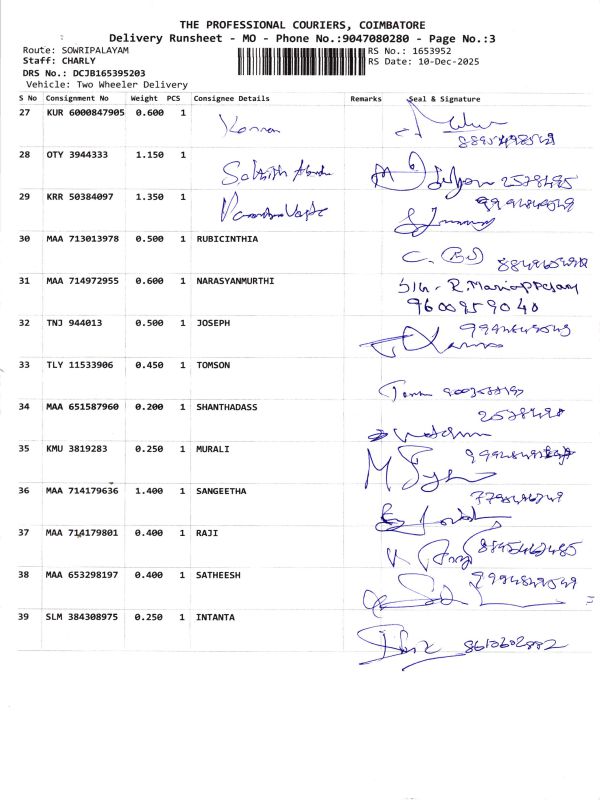 THE PROFESSIONAL COURIERS, COIMBATORE
Delivery Runsheet - MO - Phone No.:9047080280 - Page No.:3
Route: SOWRIPALAYAM RS No.: 1653952
Staff: CHARLY RS Date: 10-Dec-2025
DRS No.: DCJB165395203
Vehicle: Two Wheeler Delivery
S No Consignment No Weight PCS Consignee Details Remarks Seal & Signature
27 KUR 6000847905 0.600 1 Kannan
28 OTY 3944333 1.150 1
29 KRR 50384097 1.350 1
30 MAA 713013978 0.500 1 RUBICINTHIA
31 MAA 714972955 0.600 1 NARASYANMURTHI
9600959040
32 TNJ 944013 0.500 1 JOSEPH
33 TLY 11533906 0.450 1 TOMSON
34 MAA 651587960 0.200 1 SHANTHADASS
35 KMU 3819283 0.250 1 MURALI
36 MAA 714179636 1.400 1 SANGEETHA
37 MAA 714179801 0.400 1 RAJI
38 MAA 653298197 0.400 1 SATHEESH
39 SLM 384308975 0.250 1 INTANTA